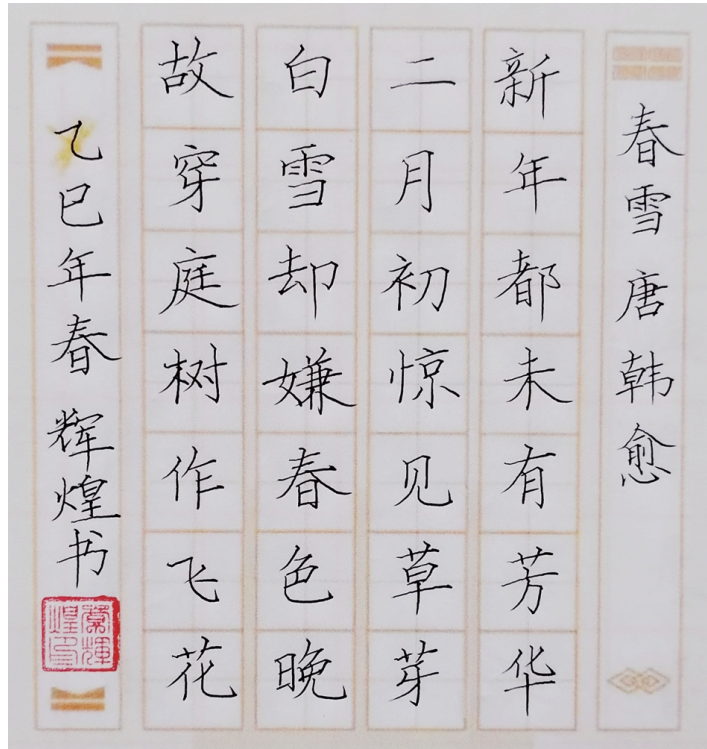 春雪 唐 韩愈
新年都未有芳华
二月初惊见草芽
白雪却嫌春色晚
故穿庭树作飞花
乙巳年春 辉煌书